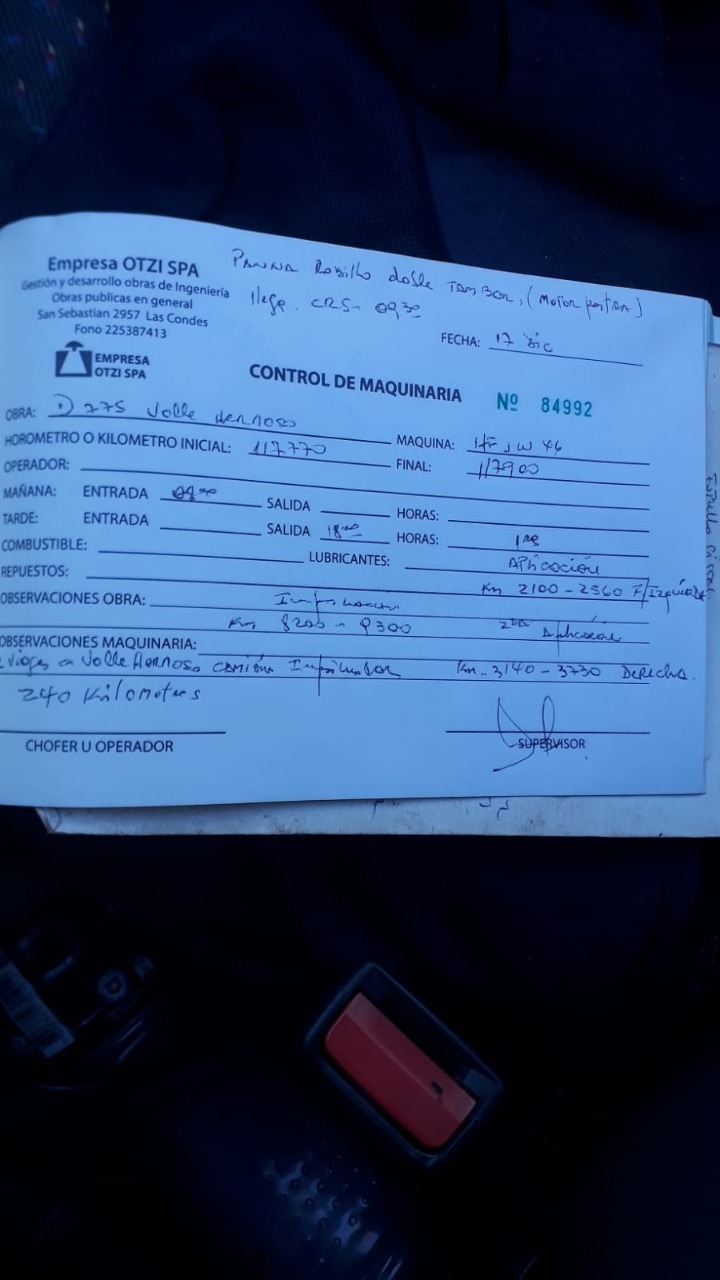 Empresa OTZI SPA
Gestión y desarrollo obras de Ingeniería
Obras publicas en general
San Sebastian 2957 Las Condes
Fono 225387413
EMPRESA
OTZI SPA
PANNA Rodillo doble TAMBOR, (Motor partida)
llega. CRS- 0930
FECHA: 17 Dic
CONTROL DE MAQUINARIA
Nº 84992
OBRA: D 775 Valle Hermoso
MAQUINA: HFJW 46
HOROMETRO O KILOMETRO INICIAL: 117770
FINAL: 117900
OPERADOR:
MAÑANA: ENTRADA 0800 SALIDA HORAS:
TARDE: ENTRADA SALIDA 1800 HORAS:
1ra
COMBUSTIBLE: LUBRICANTES: Aplicación
REPUESTOS:
Km 2100-2560 F/Izquierda
OBSERVACIONES OBRA: Imprimación
Km 8200 - 9300 2da Aplicación
OBSERVACIONES MAQUINARIA:
viajes a Valle Hermoso camión Imprimador Km. 3140-3730 Derecha.
240 Kilometros
CHOFER U OPERADOR
SUPERVISOR